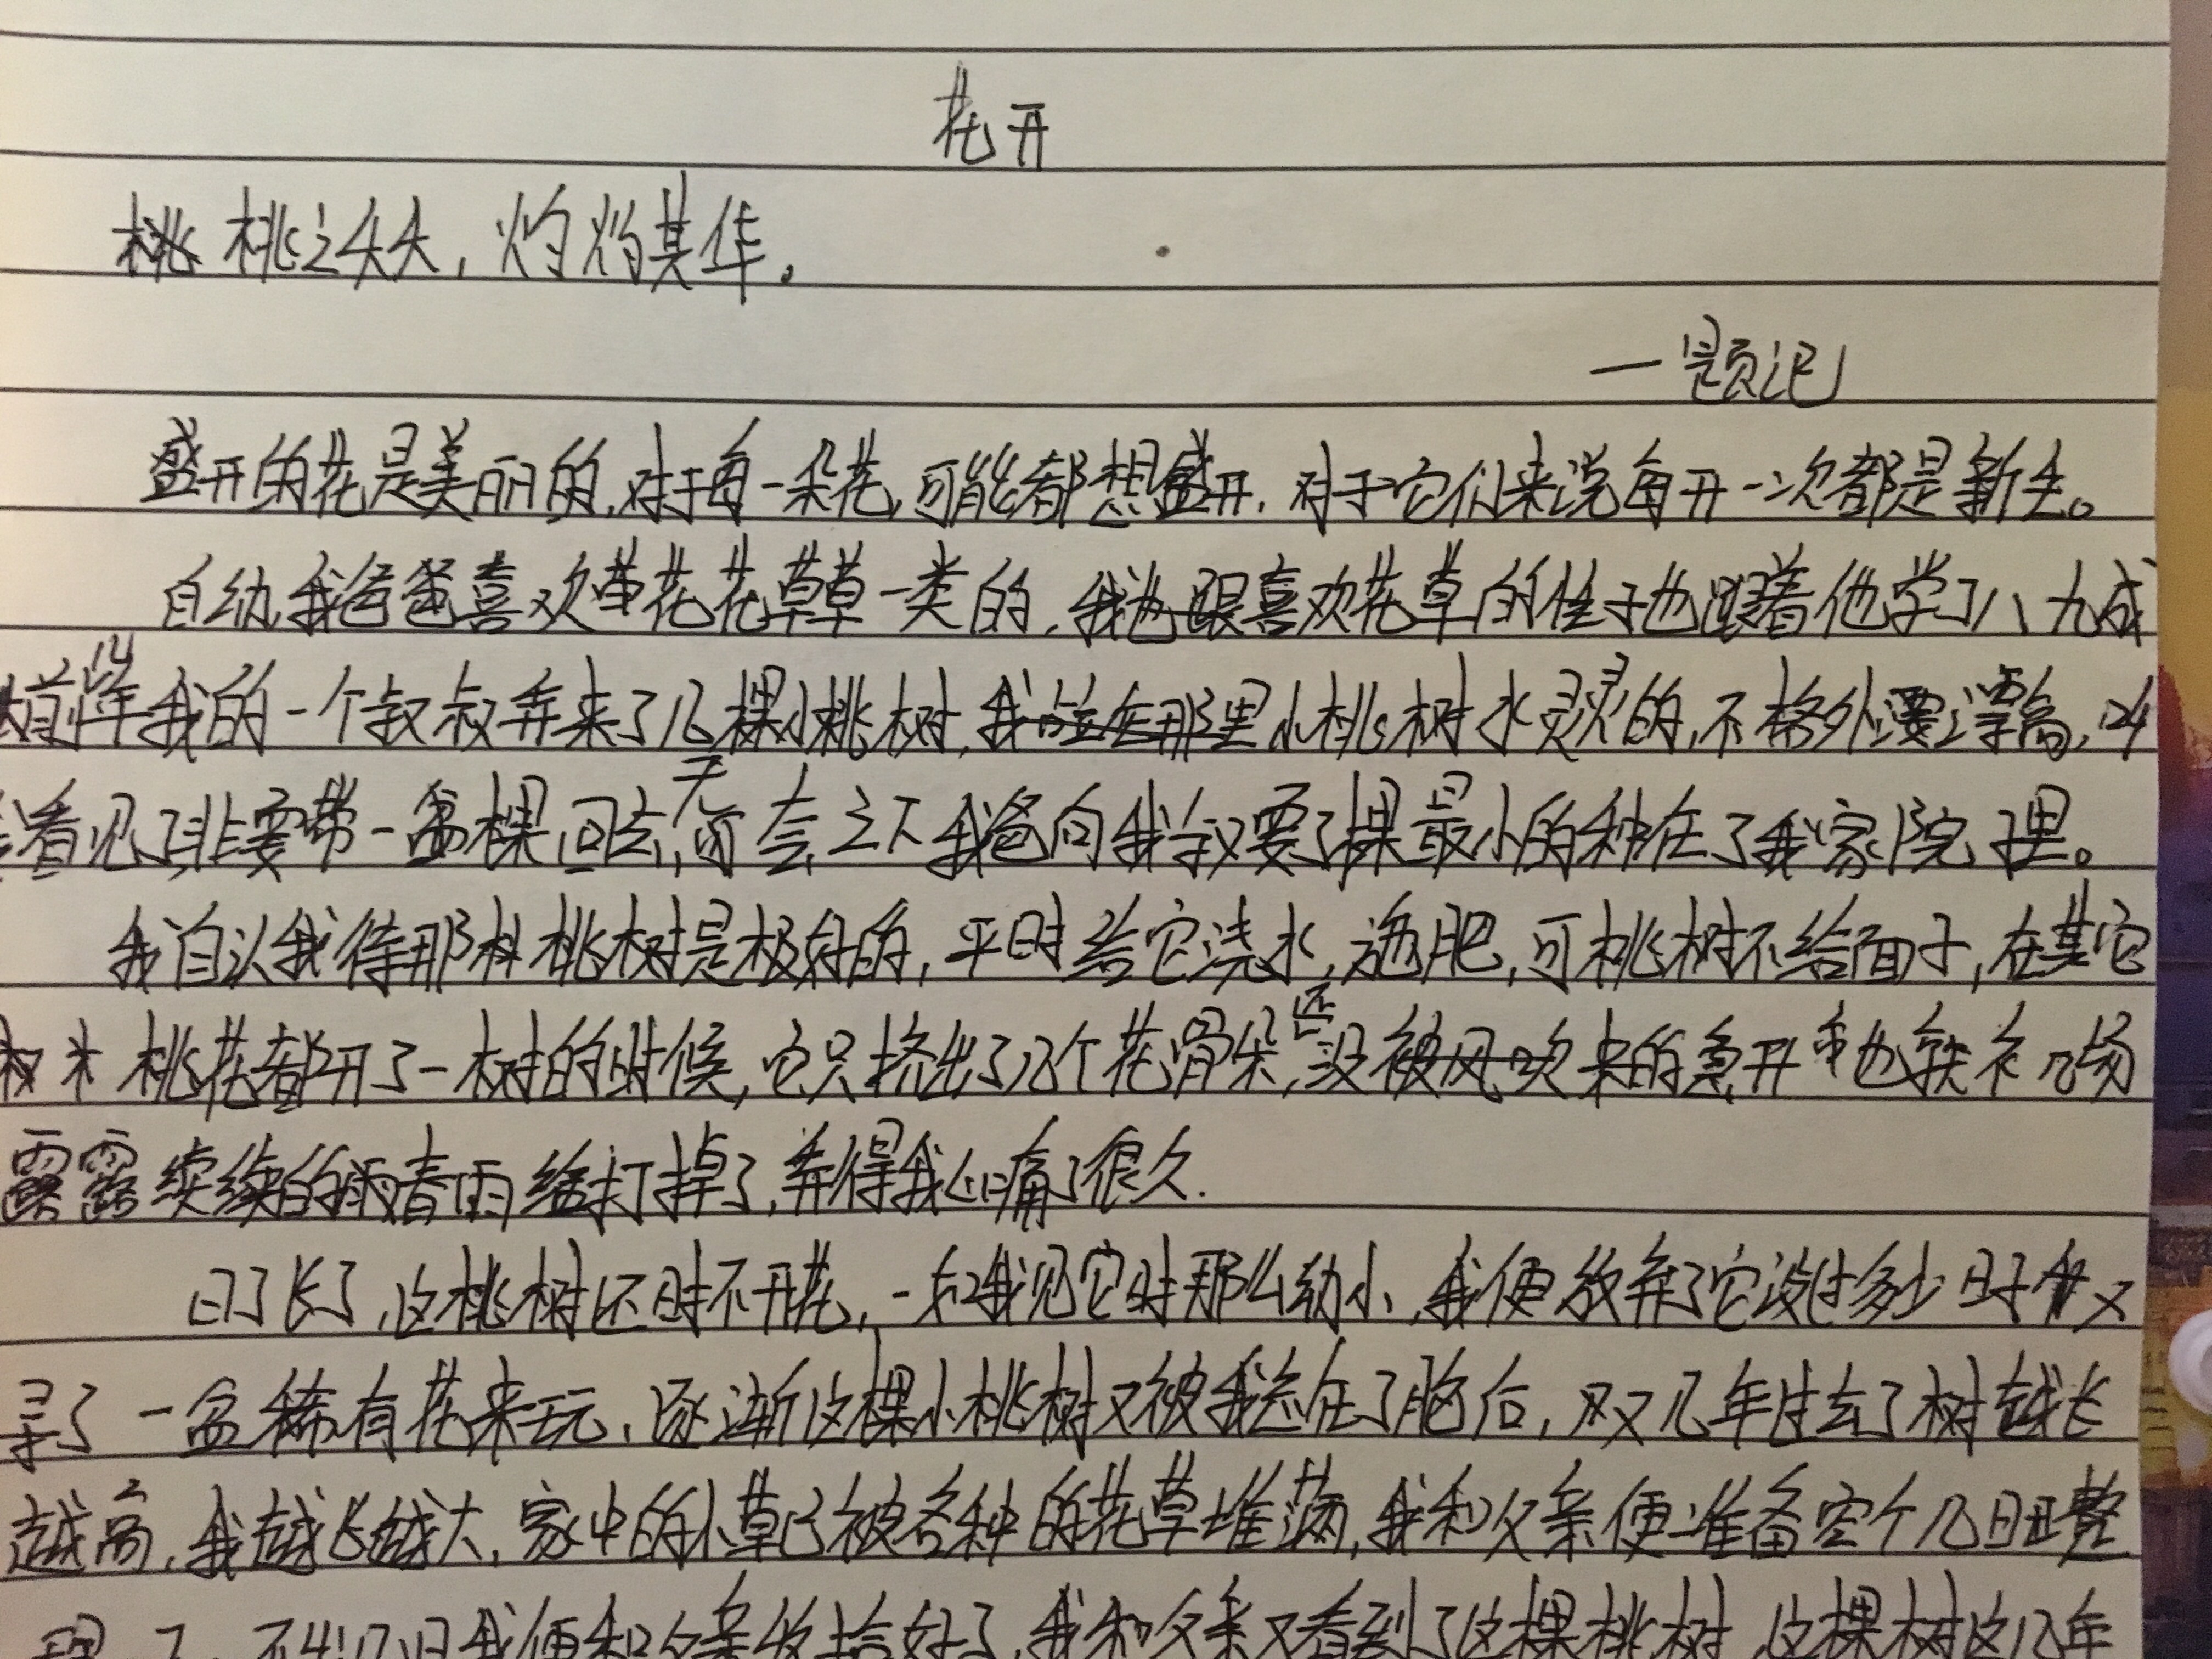 花开
桃之夭夭，灼灼其华。
一题记
盛开的花是美丽的，对于每一朵花，可能都想盛开，对于它们来说每开一次都是新生。
自幼我爸爸喜欢花花草草一类的，我喜欢花草的性子也跟着他学了八九成
前些年我的一个叔叔弄来了几棵小桃树，那里小桃树水灵灵的，不格外漂亮，
看见了非要带一棵回去，无奈之下我爸向我叔要了棵最小的种在了我家院子里。
我自认我待那桃树是极好的，平时给它浇水，施肥，可桃树不给面子，在其它
桃花都开了一树的时候，它只挤出了几个花骨朵，还没来的急开也被几场
续续的春雨给打掉了，弄得我心痛了很久.
日子长了，这桃树还时不开花，一如我见它时那么幼小，我便放弃了它没过多少日子又
寻了一盆稀有花来玩，逐渐这棵小桃树又被我忘在了脑后，又几年过去了树越长
越高，我越长越大，家中的小草已被各种的花草堆满，我和父亲便准备空个几日整
理了，不出几日我便和父亲收拾好了，我和父亲又看到了这棵桃树，这棵树这几年